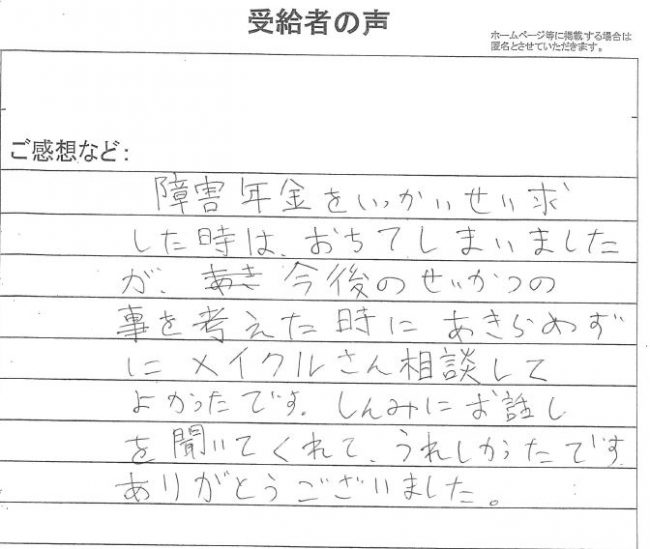 受給者の声
ホームページ等に掲載する場合は
匿名とさせていただきます。
ご感想など:
障害年金をいっかいせい求
した時は、おちてしまいました
が、あき 今後のせいかつの
事を考えた時にあきらめず
にメイクルさん相談して
よかったです。しんみにお話し
を聞いてくれて、うれしかったです
ありがとうございました。